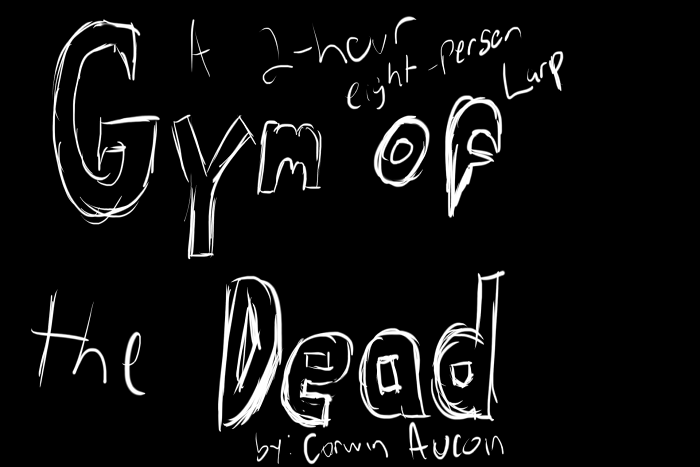 A 2-hour
eight-person
Larp
Gym of
the Dead
by: Corwin Aucoin